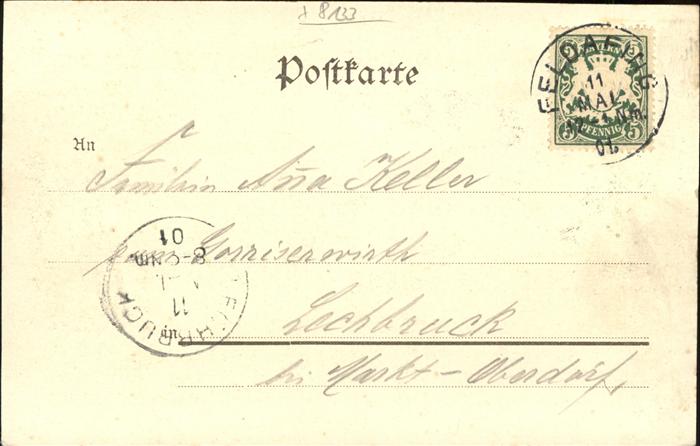 + 8133
Postkarte
BAYERN
5 5
5 PFENNIG 5
FELDAFING
11
MAI
Nm.
01.
An
Anna Keller
Lechbruck
in
bei Markt-Oberdorf,
LECHBRUCK
11
8-9 NM
01